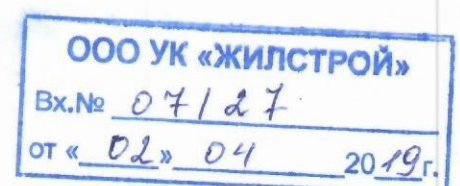 ООО УК «ЖИЛСТРОЙ»
Вх.№ 07/27
от «02» 04 2019г.